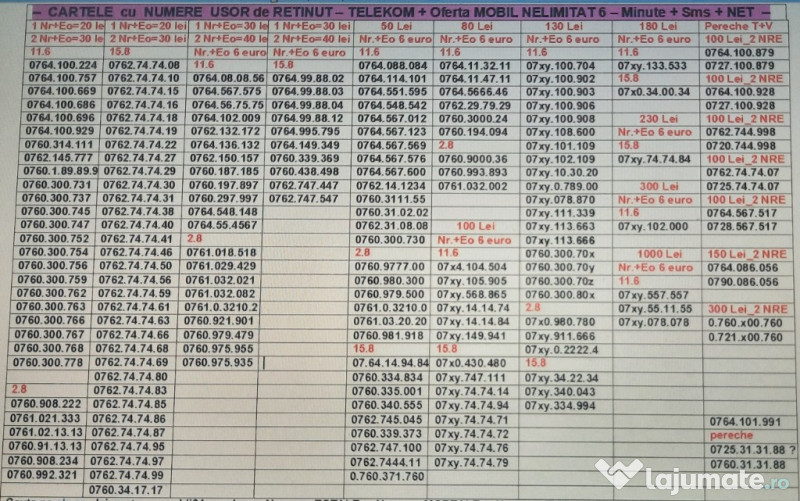 – CARTELE cu NUMERE USOR de RETINUT – TELEKOM + Oferta MOBIL NELIMITAT 6 – Minute + Sms + NET –
1 Nr+Eo=20 lei 1 Nr+Eo=30 lei 1 Nr+Eo=30 lei 1 Nr+Eo=30 lei 50 Lei 80 Lei 130 Lei 180 Lei Pereche T+V
2 Nr+Eo=30 lei 2 Nr+Eo=30 lei 2 Nr+Eo=40 le 2 Nr+Eo=40 lei Nr.+Eo 6 euro Nr.+Eo 6 euro Nr.+Eo 6 euro Nr.+Eo 6 euro 100 Lei_2 NRE
11.6 15.8 Nr.+Eo 6 euro Nr.+Eo 6 euro 11.6 11.6 11.6 11.6 0764.100.879
0764.100.224 0762.74.74.08 11.6 15.8 0764.088.084 0764.11.32.11 07xy.100.704 07xy.133.533 0727.100.879
0764.100.757 0762.74.74.10 0764.08.08.56 0764.99.88.02 0764.114.101 0764.11.47.11 07xy.100.902 15.8 100 Lei_2 NRE
0764.100.669 0762.74.74.15 0764.567.575 0764.99.88.03 0764.551.595 0764.5666.46 07xy.100.903 07x0.34.00.34 0764.100.928
0764.100.686 0762.74.74.16 0764.56.75.75 0764.99.88.04 0764.548.542 0762.29.79.29 07xy.100.906 0727.100.928
0764.100.696 0762.74.74.18 0764.102.009 0764.99.88.12 0764.567.012 0760.3000.24 07xy.100.908 230 Lei 100 Lei_2 NRE
0764.100.929 0762.74.74.19 0762.132.172 0764.995.795 0764.567.123 0760.194.094 07xy.108.600 Nr.+Eo 6 euro 0762.744.998
0760.314.111 0762.74.74.22 0764.136.132 0764.149.349 0764.567.569 2.8 07xy.101.109 15.8 0720.744.998
0762.145.777 0762.74.74.27 0762.150.157 0760.339.369 0764.567.576 0760.9000.36 07xy.102.109 07xy.74.74.84 100 Lei_2 NRE
0760.1.89.89.9 0762.74.74.29 0760.187.185 0760.438.498 0764.567.600 0760.993.893 07xy.10.30.20 0762.74.74.07
0760.300.731 0762.74.74.30 0760.197.897 0762.747.447 0762.14.1234 0761.032.002 07xy.0.789.00 300 Lei 0725.74.74.07
0760.300.737 0762.74.74.31 0760.297.997 0762.747.547 0760.3111.55 07xy.078.870 Nr.+Eo 6 euro 100 Lei_2 NRE
0760.300.745 0762.74.74.38 0764.548.148 0760.31.02.02 07xy.111.339 11.6 0764.567.517
0760.300.747 0762.74.74.40 0764.55.4567 0762.31.08.08 100 Lei 07xy.113.663 07xy.102.000 0728.567.517
0760.300.752 0762.74.74.41 2.8 0760.300.730 Nr.+Eo 6 euro 07xy.113.666
0760.300.754 0762.74.74.46 0761.018.518 2.8 11.6 0760.300.70x 1000 Lei 150 Lei_2 NRE
0760.300.756 0762.74.74.50 0761.029.429 0760.9777.00 07x4.104.504 0760.300.70y Nr.+Eo 6 euro 0764.086.056
0760.300.759 0762.74.74.56 0761.032.021 0760.980.300 07xy.105.905 0760.300.70z 11.6 0790.086.056
0760.300.762 0762.74.74.59 0761.032.082 0760.979.500 07xy.568.865 0760.300.80x 07xy.557.557
0760.300.763 0762.74.74.61 0761.0.3210.2 0761.0.3210.0 07xy.14.14.74 2.8 07xy.55.11.55 300 Lei_2 NRE
0760.300.766 0762.74.74.63 0760.921.901 0761.03.20.20 07xy.14.14.84 07x0.980.780 07xy.078.078 0.760.x00.760
0760.300.767 0762.74.74.66 0760.979.479 0760.981.918 07xy.149.941 07xy.911.666 0.721.x00.760
0760.300.768 0762.74.74.68 0760.975.955 15.8 15.8 07xy.0.2222.4
0760.300.778 0762.74.74.69 0760.975.935 07.64.14.94.84 07x0.430.480 15.8
0762.74.74.80 0760.334.834 07xy.747.111 07xy.34.22.34
2.8 0762.74.74.83 0760.335.001 07xy.74.74.14 07xy.340.043
0760.908.222 0762.74.74.85 0760.340.555 07xy.74.74.94 07xy.334.994
0761.021.333 0762.74.74.86 0762.745.045 07xy.74.74.71 0764.101.991
0761.02.13.13 0762.74.74.87 0760.339.373 07xy.74.74.72 pereche
0760.91.13.13 0762.74.74.95 0762.747.100 07xy.74.74.76 0725.31.31.88 ?
0760.908.234 0762.74.74.97 0762.7444.11 07xy.74.74.79 0760.31.31.88
0760.992.321 0762.74.74.99 0.760.371.760
0760.34.17.17
Lajumate.ro